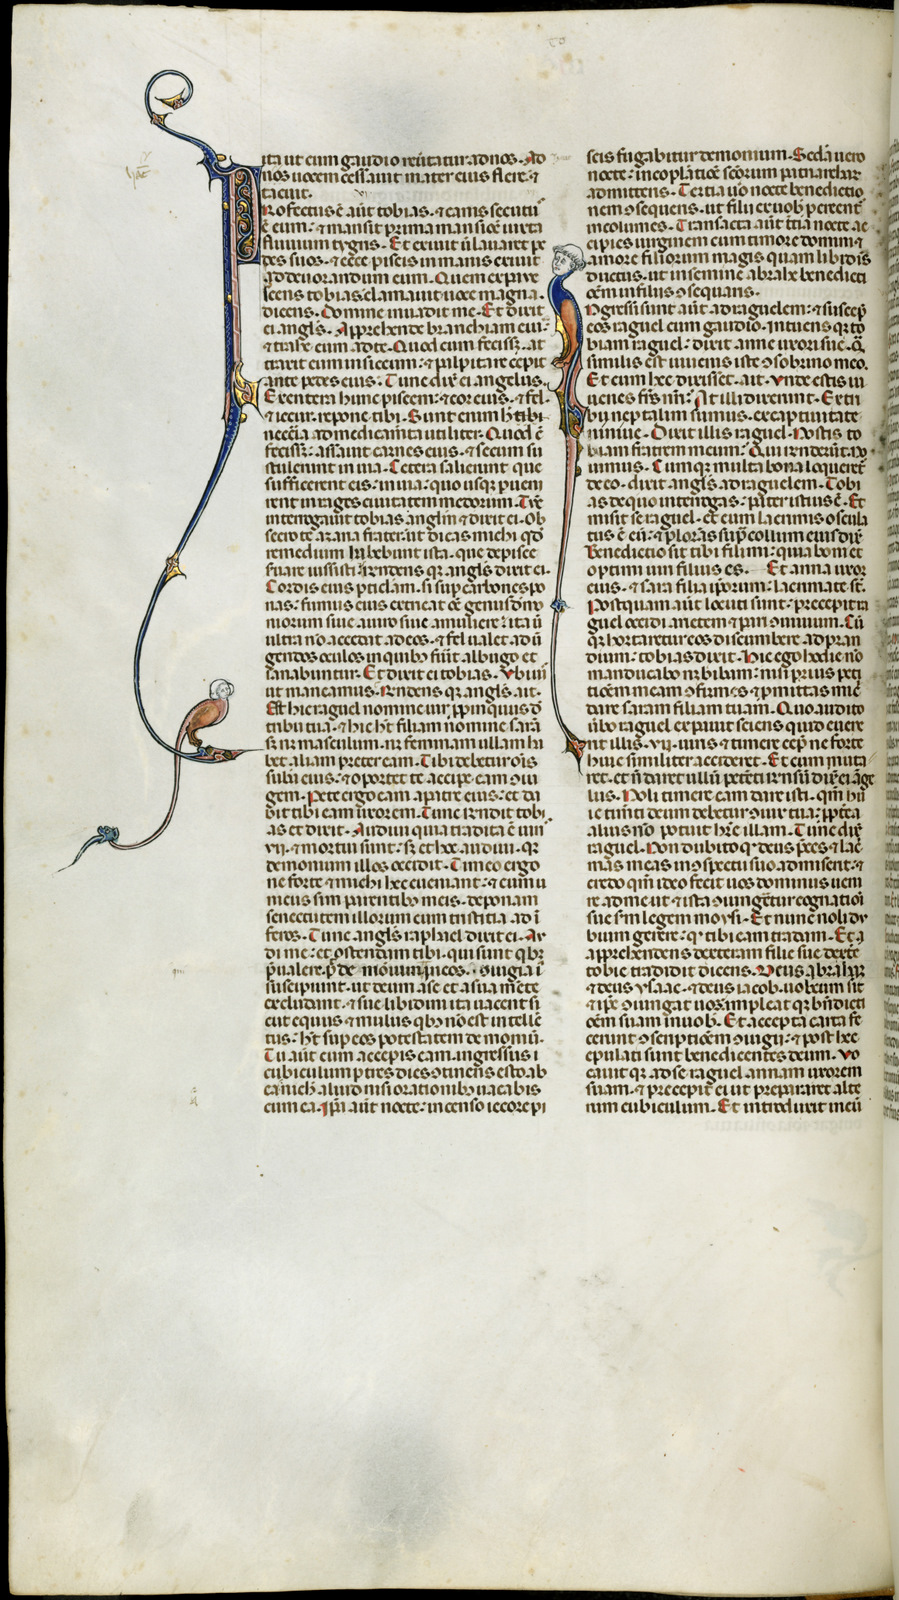 ita ut cum gaudio reũtatur ad nos. Ad
nos uocem cessauit mater eius flere: ⁊
tacuit.
Profectus ē aũt tobias. ⁊ canis secutꝰ
ē eum: ⁊ mansit prima mansiōe iuxta
fluuium tygris. Et exiuit ũ lauaret pe
des suos. ⁊ ecce piscis inmanis exiuit
ad deuorandum eum. Quem expaue
scens tobias clamauit uoce magna.
dicens. Domine inuadit me. Et dixit
ei angl̃s. Apprehende branchiam eiꝰ.
⁊ trahe eum ad te. Quod cum fecisset. at
traxit eum in siccum: ⁊ palpitare cepit
ante pedes eius. Tunc dix̃ ei angelus.
Exentera hunc piscem: ⁊ cor eius. ⁊ fel
⁊ iecur. repone tibi. Sunt enim h̃ tibi
nec̃cia ad medicam̃ta utiliter. Quod c̃
fecisset: assauit carnes eius. ⁊ secum su
stulerunt in uia. Cetera salierunt que
sufficerent eis: in uia: quo usqꝫ pueni
rent in rages ciuitatem medorum. Tũc
interrogauit tobias anglm̃ ⁊ dixit ei. Ob
secro te azaria frater: ut dicas michi qd̃
remedium habebunt ista. que de pisce
suare iussisti: r̃ndens qꝫ angl̃s dixit ei.
Cordis eius pticlam. si sup carbones po
nas: fumus eius extricat oẽ genus demo
niorum siue a uiro siue a muliere: ita ũ
ultra nō accedat ad eos. ⁊ fel ualet ad ũ
gendos oculos in quibꝰ fũit albugo et
sanabuntur. Et dixit ei tobias. Vbi uis
ut maneamus. R̃ndens qꝫ angl̃s. ait.
Est hic raguel nomine uir ppinquus d̃
tribu tua. ⁊ hic ht̃ filiam ñomine sarã
sꝫ nꝫ masculum. nꝫ feminam ullam ha
bet aliam preter eam. Tibi debetur oĩs
subã eius. ⁊ oportet te accipe eam ꝯiu
gem. Pete ergo eam a patre eius: et da
bit tibi eam uxorem. Tunc r̃ndit tobi
as et dixit. Audiui quia tradita ē uiris
vii. ⁊ mortui sunt: sꝫ et hec audiui. qꝫ
demonium illos occidit. Timeo ergo
ne forte ⁊ michi hec eueniant: ⁊ cum u
nicus sim parentibꝰ meis. deponam
senectutem illorum cum tristitia ad ĩ
feros. Tunc angl̃s raphael dixit ei. Au
di me: et ostendam tibi. qui sunt qbꝫ
p̃ualere p̃t demonium. hii nāqꝫ qui ꝯiugia ĩ
suscipiunt. ut deum a se et a sua mẽte
excludant. ⁊ sue libidini ita uacent si
cut equus ⁊ mulus qbꝫ nō est intellec
tus: ht̃ sup eos potestatem demoniũ.
Tu aũt cum acceperis eam. ingressus i
cubiculum p tres dies ꝯtinens esto ab
ea: nichil aliud nisi orationibꝰ uacabis
cum ea. Ip̃a aũt nocte: incenso iecore pi
scis fugabitur demonium. Secda uero
nocte: in coplatiōe sc̃orum patriarchar
admitteris. Tertia ũo nocte benedictio
nem ꝯsequeris. ut filii ex uob̃ pcreent̃
incolumes. Transacta aũt t̃tia nocte ac
cipies uirginem cum timore domini ⁊
amore filiorum magis quam libidis
ductus. ut in semine abrahe benedicti
oẽm in filiis ꝯsequaris.
Ingressi sunt aũt ad raguelem: ⁊ suscep̃
eos raguel cum gaudio. Intuens qꝫ to
biam raguel: dixit anne uxori sue. Q̃
similis est iuuenis iste ꝯsobrino meo.
Et cum hec dixisset. ait. Vnde estis iu
uenes frs̃ nr̃i: At illi dixerunt. Ex tri
bu neptalim sumus. ex captiuitate
niniue. Dixit illis raguel. Nostis to
biam fratrem meum: Qui r̃nderũt. No
uimus. Cumqꝫ multa bona loqueret̃
de eo. dixit angl̃s ad raguelem. Tobi
as de quo interrogas: pater istius ē. Et
misit se raguel. et cum lacrimis oscula
tus ē eũ: ⁊ ploras sup collum eius dix̃.
Benedictio sit tibi fili mi: quia boni et
optimi uiri filius es. Et anna uxor
eius. ⁊ sara filia ip̃orum: lacrimate st̃.
Postquam aũt locuti sunt: precepit ra
guel occidi arietem ⁊ pari ꝯuiuium. Cũ
qꝫ hortaretur eos discumbere ad pran
dium: tobias dixit. Hic ego hodie nō
manducabo nꝫ bibam: nisi prius peti
tiōem meam ꝯfirmes ⁊ pmittas mic̃
dare saram filiam tuam. Quo audito
ũbo raguel expauit sciens quid euene
rit illis. vii. uiris ⁊ timere cep̃ ne forte
huic similiter accideret. Et cum nuta
ret. et ñ daret ullũ petẽti r̃nsũ dix̃ ei ange
lus. Noli timere eam dare isti. qm̃ hu
ic timẽti deum debetur ꝯiux tua: pp̃tea
alius nō potuit hr̃e illam. Tunc dix̃
raguel. Non dubito qꝫ deus p̃ces ⁊ lac
mas meas in ꝯspectu suo admiserit: ⁊
credo qm̃ ideo fecit uos dominus ueni
re ad me ut ⁊ ista ꝯiungẽtur cognatiōi
sue sm̃ legem moysi. Et nunc noli du
bium gerere: qꝫ tibi eam tradam. Et
apprehendens dexteram filie sue dexte
tobie tradidit dicens. Deus abraham
⁊ deus ysaac. ⁊ deus iacob. uobcum sit
⁊ ip̃e ꝯiungat uos. ampleat qꝫ bñdicti
oẽm suam in uob̃. Et accepta carta fe
cerunt ꝯscriptiōem ꝯiugii: ⁊ post hec
epulati sunt benedicentes deum. Vo
cauit qꝫ ad se raguel annam uxorem
suam. ⁊ precepit ei ut prepararet alte
rum cubiculum. Et introduxit in eũ